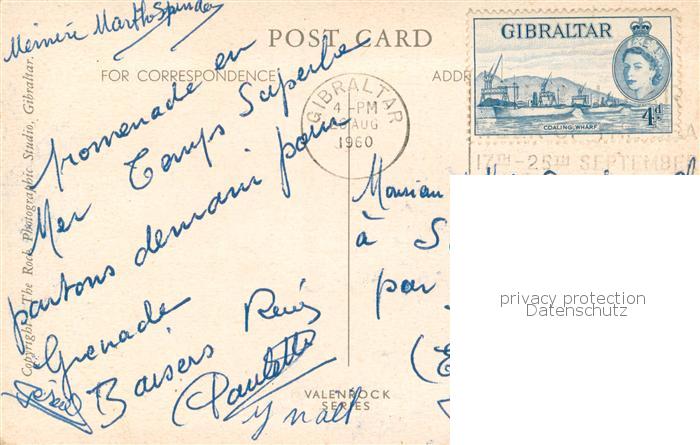 POST CARD
FOR CORRESPONDENCE
ADDR
Copyright The Rock Photographic Studio, Gibraltar.
promenade en
Mer Temps Superbe
partons demain pour
Grenade
Baisers René
Paulette
GIBRALTAR
4-PM
AUG
1960
GIBRALTAR
4d
COALING WHARF
17TH-25TH SEPTEMBER
Monsieur
à
par
VALENROCK
SERIES
privacy protection
Datenschutz